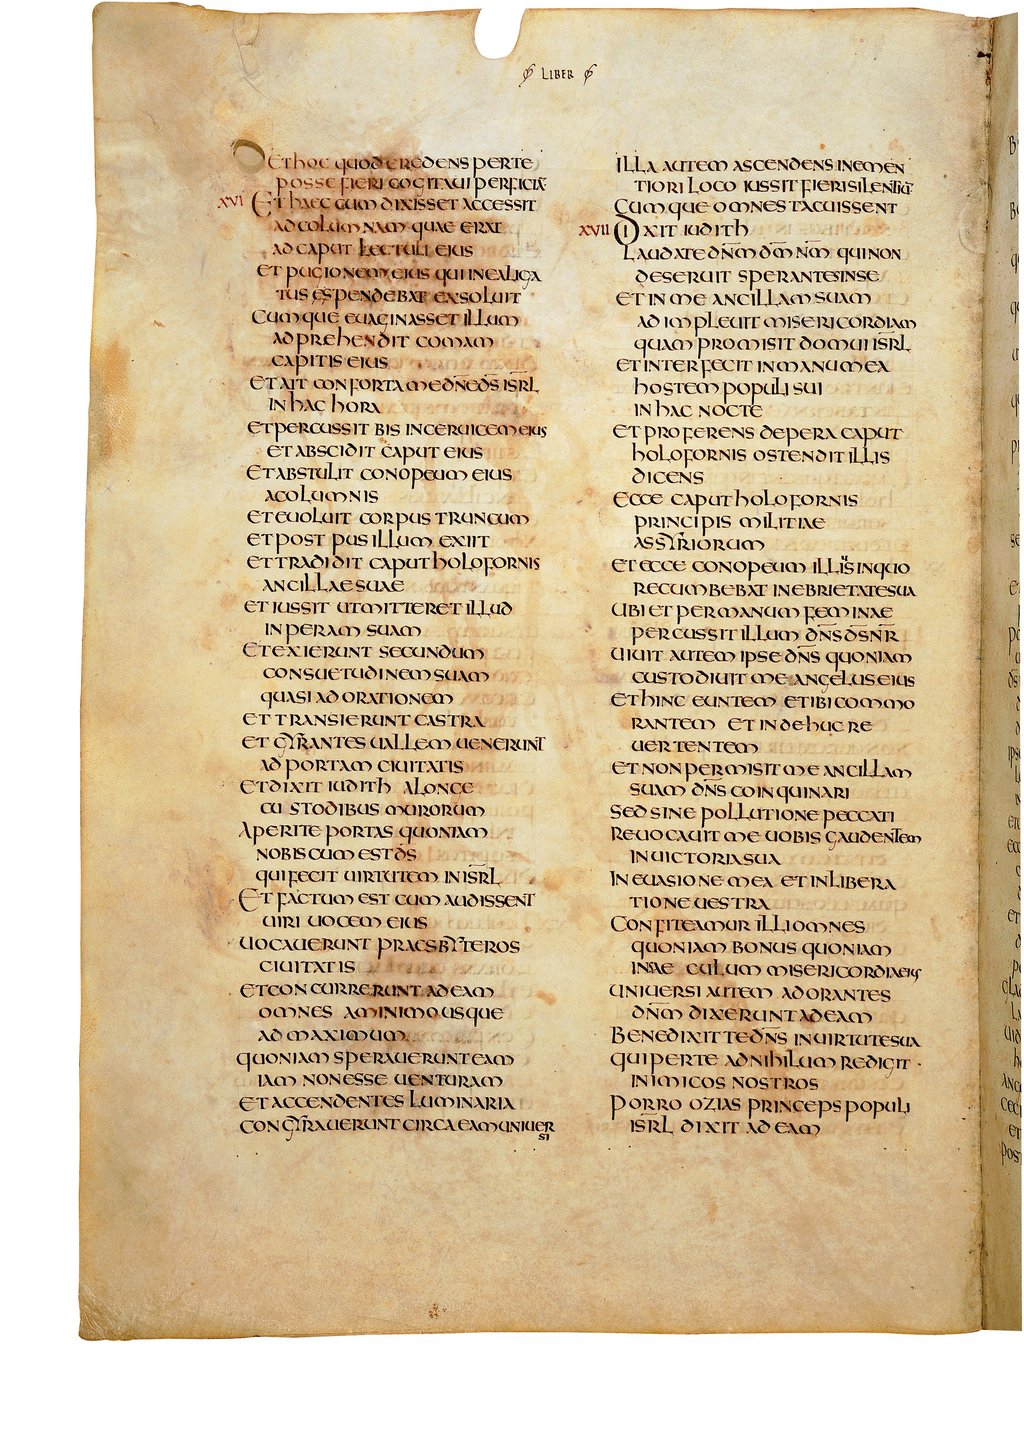 LIBER
ET HOC QUOD CREDENS PER TE
POSSE FIERI COGITAUI PERFICIA
XVI ET HAEC CUM DIXISSET ACCESSIT
AD COLUMNAM QUAE ERAT
AD CAPUT LECTULI EIUS
ET PUGIONEM EIUS QUI IN EA LIGA
TUS PENDEBAT EXSOLUIT
CUMQUE EUAGINASSET ILLUM
ADPREHENDIT COMAM
CAPITIS EIUS
ET AIT CONFORTA ME DNE DS ISRL
IN HAC HORA
ET PERCUSSIT BIS IN CERUICEM EIUS
ET ABSCIDIT CAPUT EIUS
ET ABSTULIT CONOPEUM EIUS
A COLUMNIS
ET EUOLUIT CORPUS TRUNCUM
ET POST PUSILLUM EXIIT
ET TRADIDIT CAPUT HOLOFORNIS
ANCILLAE SUAE
ET IUSSIT UT MITTERET ILLUD
IN PERAM SUAM
ET EXIERUNT SECUNDUM
CONSUETUDINEM SUAM
QUASI AD ORATIONEM
ET TRANSIERUNT CASTRA
ET GYRANTES UALLEM UENERUNT
AD PORTAM CIUITATIS
ET DIXIT IUDITH A LONGE
CUSTODIBUS MURORUM
APERITE PORTAS QUONIAM
NOBISCUM EST DS
QUI FECIT UIRTUTEM IN ISRL
ET FACTUM EST CUM AUDISSENT
UIRI UOCEM EIUS
UOCAUERUNT PRAESBYTEROS
CIUITATIS
ET CONCURRERUNT AD EAM
OMNES A MINIMO USQUE
AD MAXIMUM
QUONIAM SPERAUERUNT EAM
IAM NON ESSE UENTURAM
ET ACCENDENTES LUMINARIA
CONGYRAUERUNT CIRCA EAM UNIUER
SI
ILLA AUTEM ASCENDENS IN EMEN
TIORI LOCO IUSSIT FIERI SILENTIA
CUMQUE OMNES TACUISSENT
XVII DIXIT IUDITH
LAUDATE DNM DM NM QUI NON
DESERUIT SPERANTES IN SE
ET IN ME ANCILLAM SUAM
ADIMPLEUIT MISERICORDIAM
QUAM PROMISIT DOMUI ISRL
ET INTERFECIT IN MANU MEA
HOSTEM POPULI SUI
IN HAC NOCTE
ET PROFERENS DE PERA CAPUT
HOLOFORNIS OSTENDIT ILLIS
DICENS
ECCE CAPUT HOLOFORNIS
PRINCIPIS MILITIAE
ASSYRIORUM
ET ECCE CONOPEUM ILLIUS IN QUO
RECUMBEBAT IN EBRIETATE SUA
UBI ET PER MANUM FEMINAE
PERCUSSIT ILLUM DNS DS NR
UIUIT AUTEM IPSE DNS QUONIAM
CUSTODIUIT ME ANGELUS EIUS
ET HINC EUNTEM ET IBI COMMO
RANTEM ET INDE HUC RE
UERTENTEM
ET NON PERMISIT ME ANCILLAM
SUAM DNS COINQUINARI
SED SINE POLLUTIONE PECCATI
REUOCAUIT ME UOBIS GAUDENTEM
IN UICTORIA SUA
IN EUASIONE MEA ET IN LIBERA
TIONE UESTRA
CONFITEAMUR ILLI OMNES
QUONIAM BONUS QUONIAM
IN SAECULUM MISERICORDIA EIUS
UNIUERSI AUTEM ADORANTES
DNM DIXERUNT AD EAM
BENEDIXIT TE DNS IN UIRTUTE SUA
QUI PER TE AD NIHILUM REDIGIT
INIMICOS NOSTROS
PORRO OZIAS PRINCEPS POPULI
ISRL DIXIT AD EAM